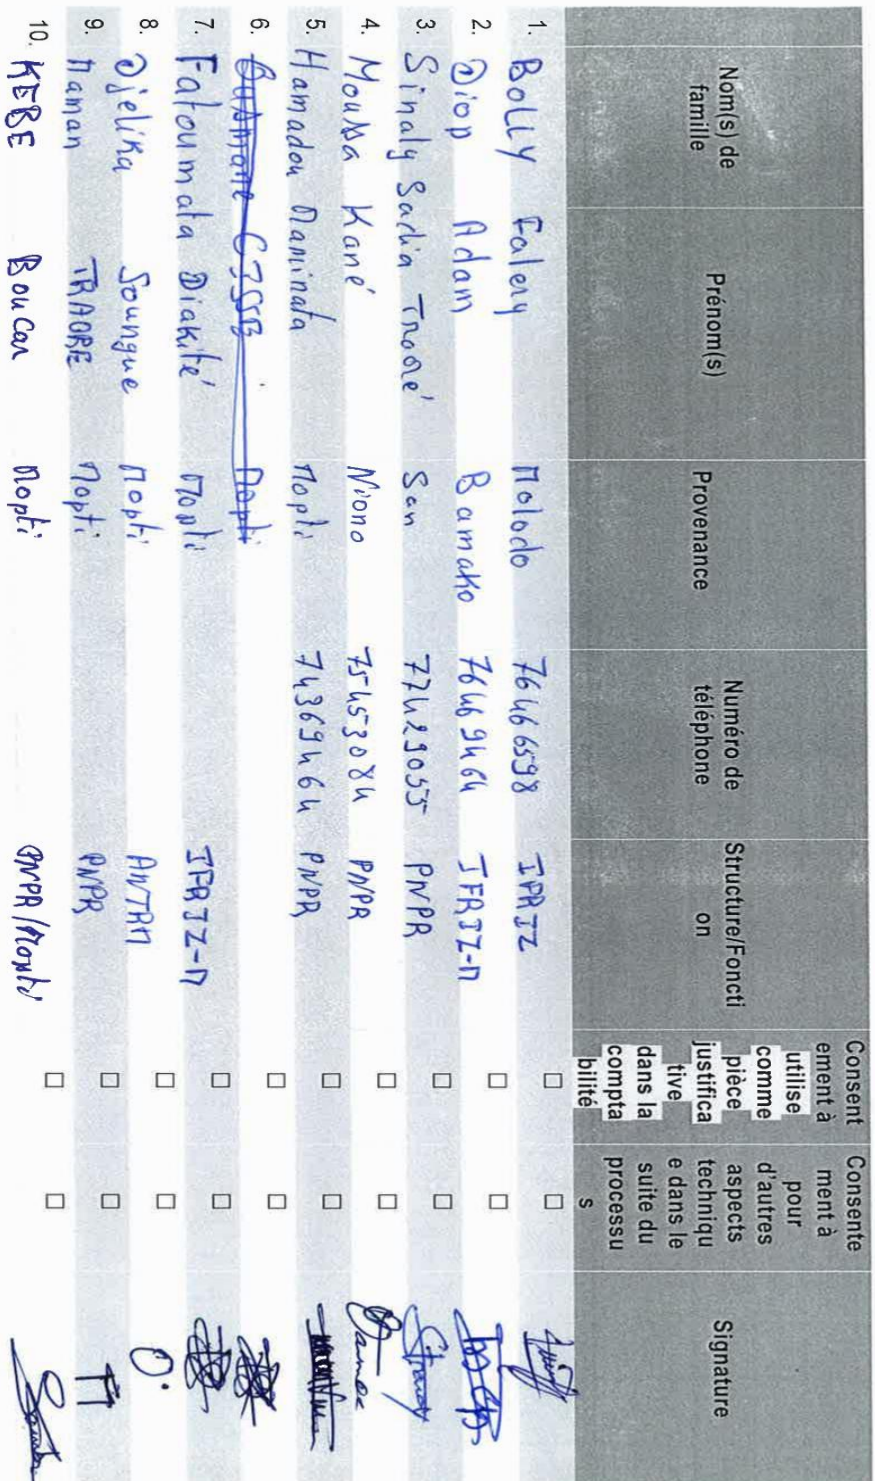 Nom(s) de famille | Prénom(s) | Provenance | Numéro de téléphone | Structure/Foncti on | Consent ement à utilise comme pièce justifica tive dans la compta bilité | Consente ment à pour d'autres aspects techniqu e dans le suite du processu s | Signature
1. BOLLY Falery Molodo 76466598 IPRIZ ☐ ☐
2. Diop Adam Bamako 76469464 IFRIZ-M ☐ ☐
3. Sinaly Sadia Traoré San 77429055 PNPR ☐ ☐
4. Moussa Kané Niono 75453084 PNPR ☐ ☐
5. Hamadou Maminata Mopti 74369464 PNPR ☐ ☐
6. Ousmane CISSE Mopti ☐ ☐
7. Fatoumata Diakité Mopti IFRIZ-M ☐ ☐
8. Djelika Soungue Mopti ANTRM ☐ ☐
9. Maman TRAORE Mopti PNPR ☐ ☐
10. KEBE Boucar Mopti PNPR/Mopti ☐ ☐